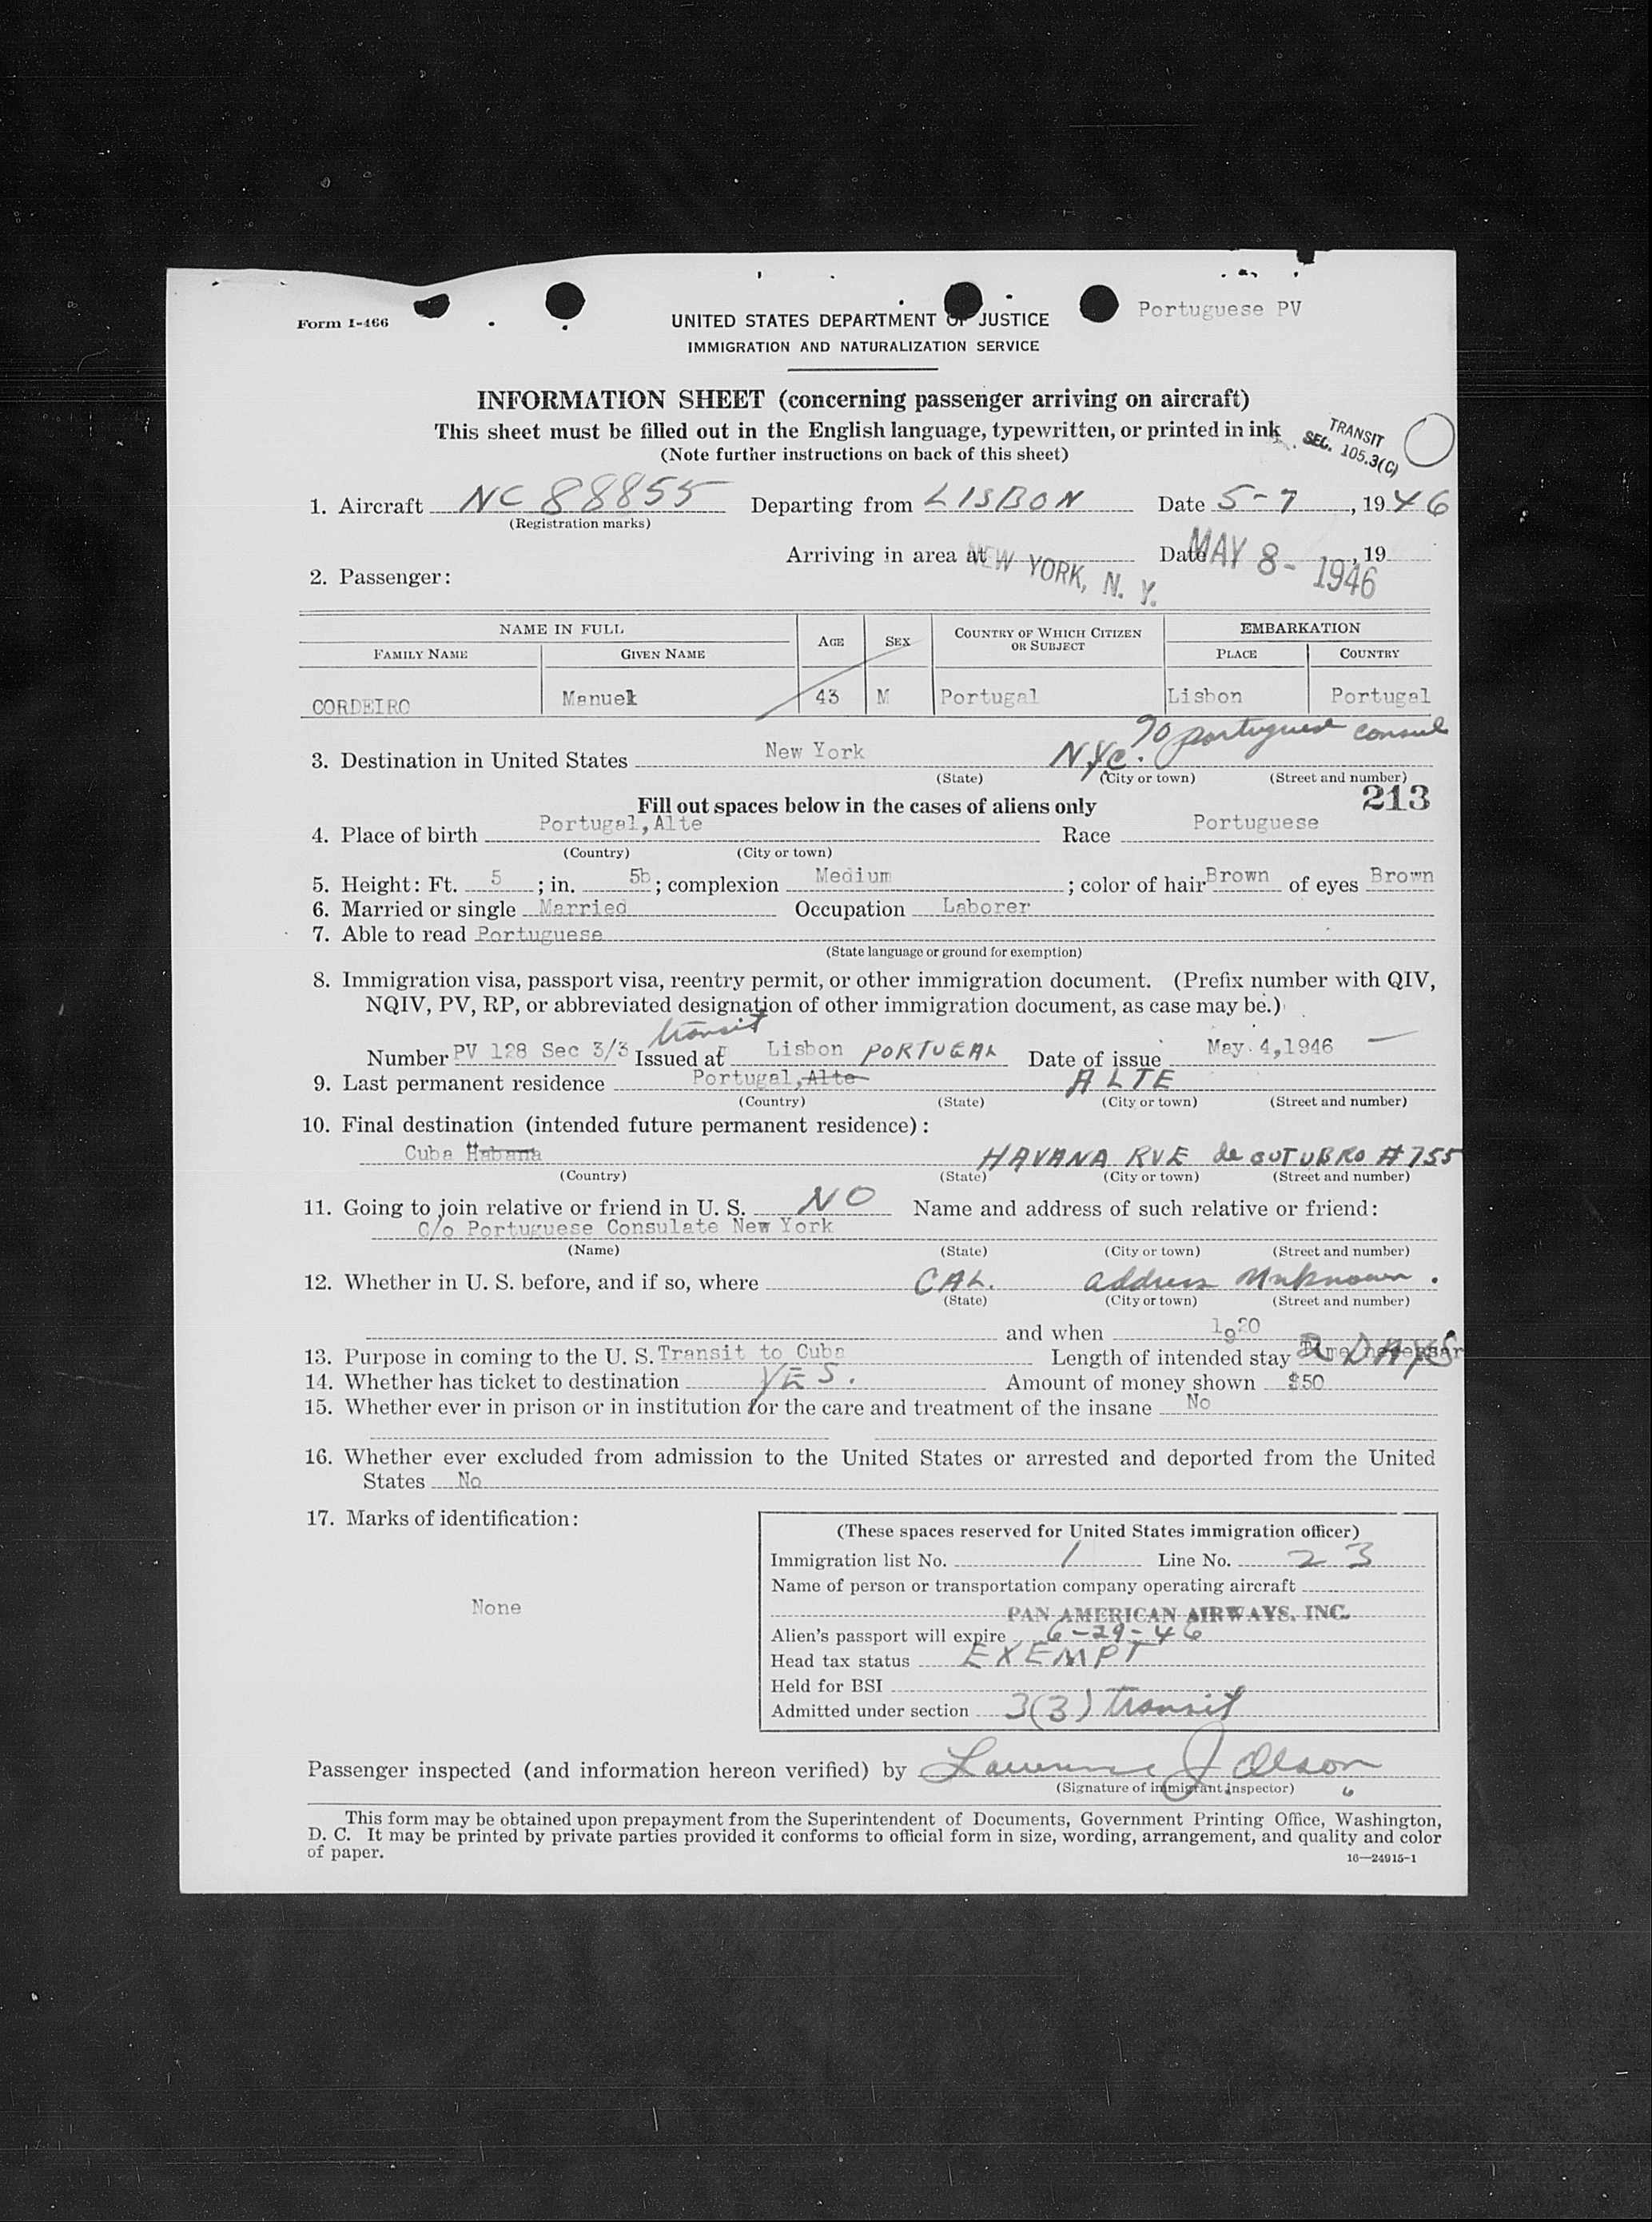 Portuguese PV
Form I-466
UNITED STATES DEPARTMENT OF JUSTICE
IMMIGRATION AND NATURALIZATION SERVICE
INFORMATION SHEET (concerning passenger arriving on aircraft)
This sheet must be filled out in the English language, typewritten, or printed in ink
(Note further instructions on back of this sheet)
TRANSIT
SEC. 105.3(C)
1. Aircraft NC 88855 Departing from LISBON Date 5-7, 1946
(Registration marks)
Arriving in area at NEW YORK, N. Y. Date MAY 8- 1946, 19
2. Passenger:
NAME IN FULL AGE SEX COUNTRY OF WHICH CITIZEN OR SUBJECT EMBARKATION
FAMILY NAME GIVEN NAME PLACE COUNTRY
CORDEIRO Manuel 43 M Portugal Lisbon Portugal
c/o portuguese consul
3. Destination in United States New York NYC.
(State) (City or town) (Street and number)
213
Fill out spaces below in the cases of aliens only
4. Place of birth Portugal, Alte Race Portuguese
(Country) (City or town)
5. Height: Ft. 5; in. 5b; complexion Medium; color of hair Brown of eyes Brown
6. Married or single Married Occupation Laborer
7. Able to read Portuguese
(State language or ground for exemption)
8. Immigration visa, passport visa, reentry permit, or other immigration document. (Prefix number with QIV,
NQIV, PV, RP, or abbreviated designation of other immigration document, as case may be.)
transit
Number PV 128 Sec 3/3 Issued at Lisbon PORTUGAL Date of issue May 4,1946
9. Last permanent residence Portugal, Alte ALTE
(Country) (State) (City or town) (Street and number)
10. Final destination (intended future permanent residence):
Cuba Habana HAVANA RUE de OUTUBRO #755
(Country) (State) (City or town) (Street and number)
11. Going to join relative or friend in U. S. NO Name and address of such relative or friend:
C/o Portuguese Consulate New York
(Name) (State) (City or town) (Street and number)
12. Whether in U. S. before, and if so, where CAL. address unknown.
(State) (City or town) (Street and number)
and when 1920
13. Purpose in coming to the U. S. Transit to Cuba Length of intended stay Time necessar 2 DAYS
14. Whether has ticket to destination YES. Amount of money shown $50
15. Whether ever in prison or in institution for the care and treatment of the insane No
16. Whether ever excluded from admission to the United States or arrested and deported from the United
States No
17. Marks of identification:
None
(These spaces reserved for United States immigration officer)
Immigration list No. 1 Line No. 23
Name of person or transportation company operating aircraft
PAN AMERICAN AIRWAYS, INC.
Alien's passport will expire 6-29-46
Head tax status EXEMPT
Held for BSI
Admitted under section 3(3) transit
Passenger inspected (and information hereon verified) by Lawrence J Olson
(Signature of immigrant inspector)
This form may be obtained upon prepayment from the Superintendent of Documents, Government Printing Office, Washington,
D. C. It may be printed by private parties provided it conforms to official form in size, wording, arrangement, and quality and color
of paper.
16—24915-1